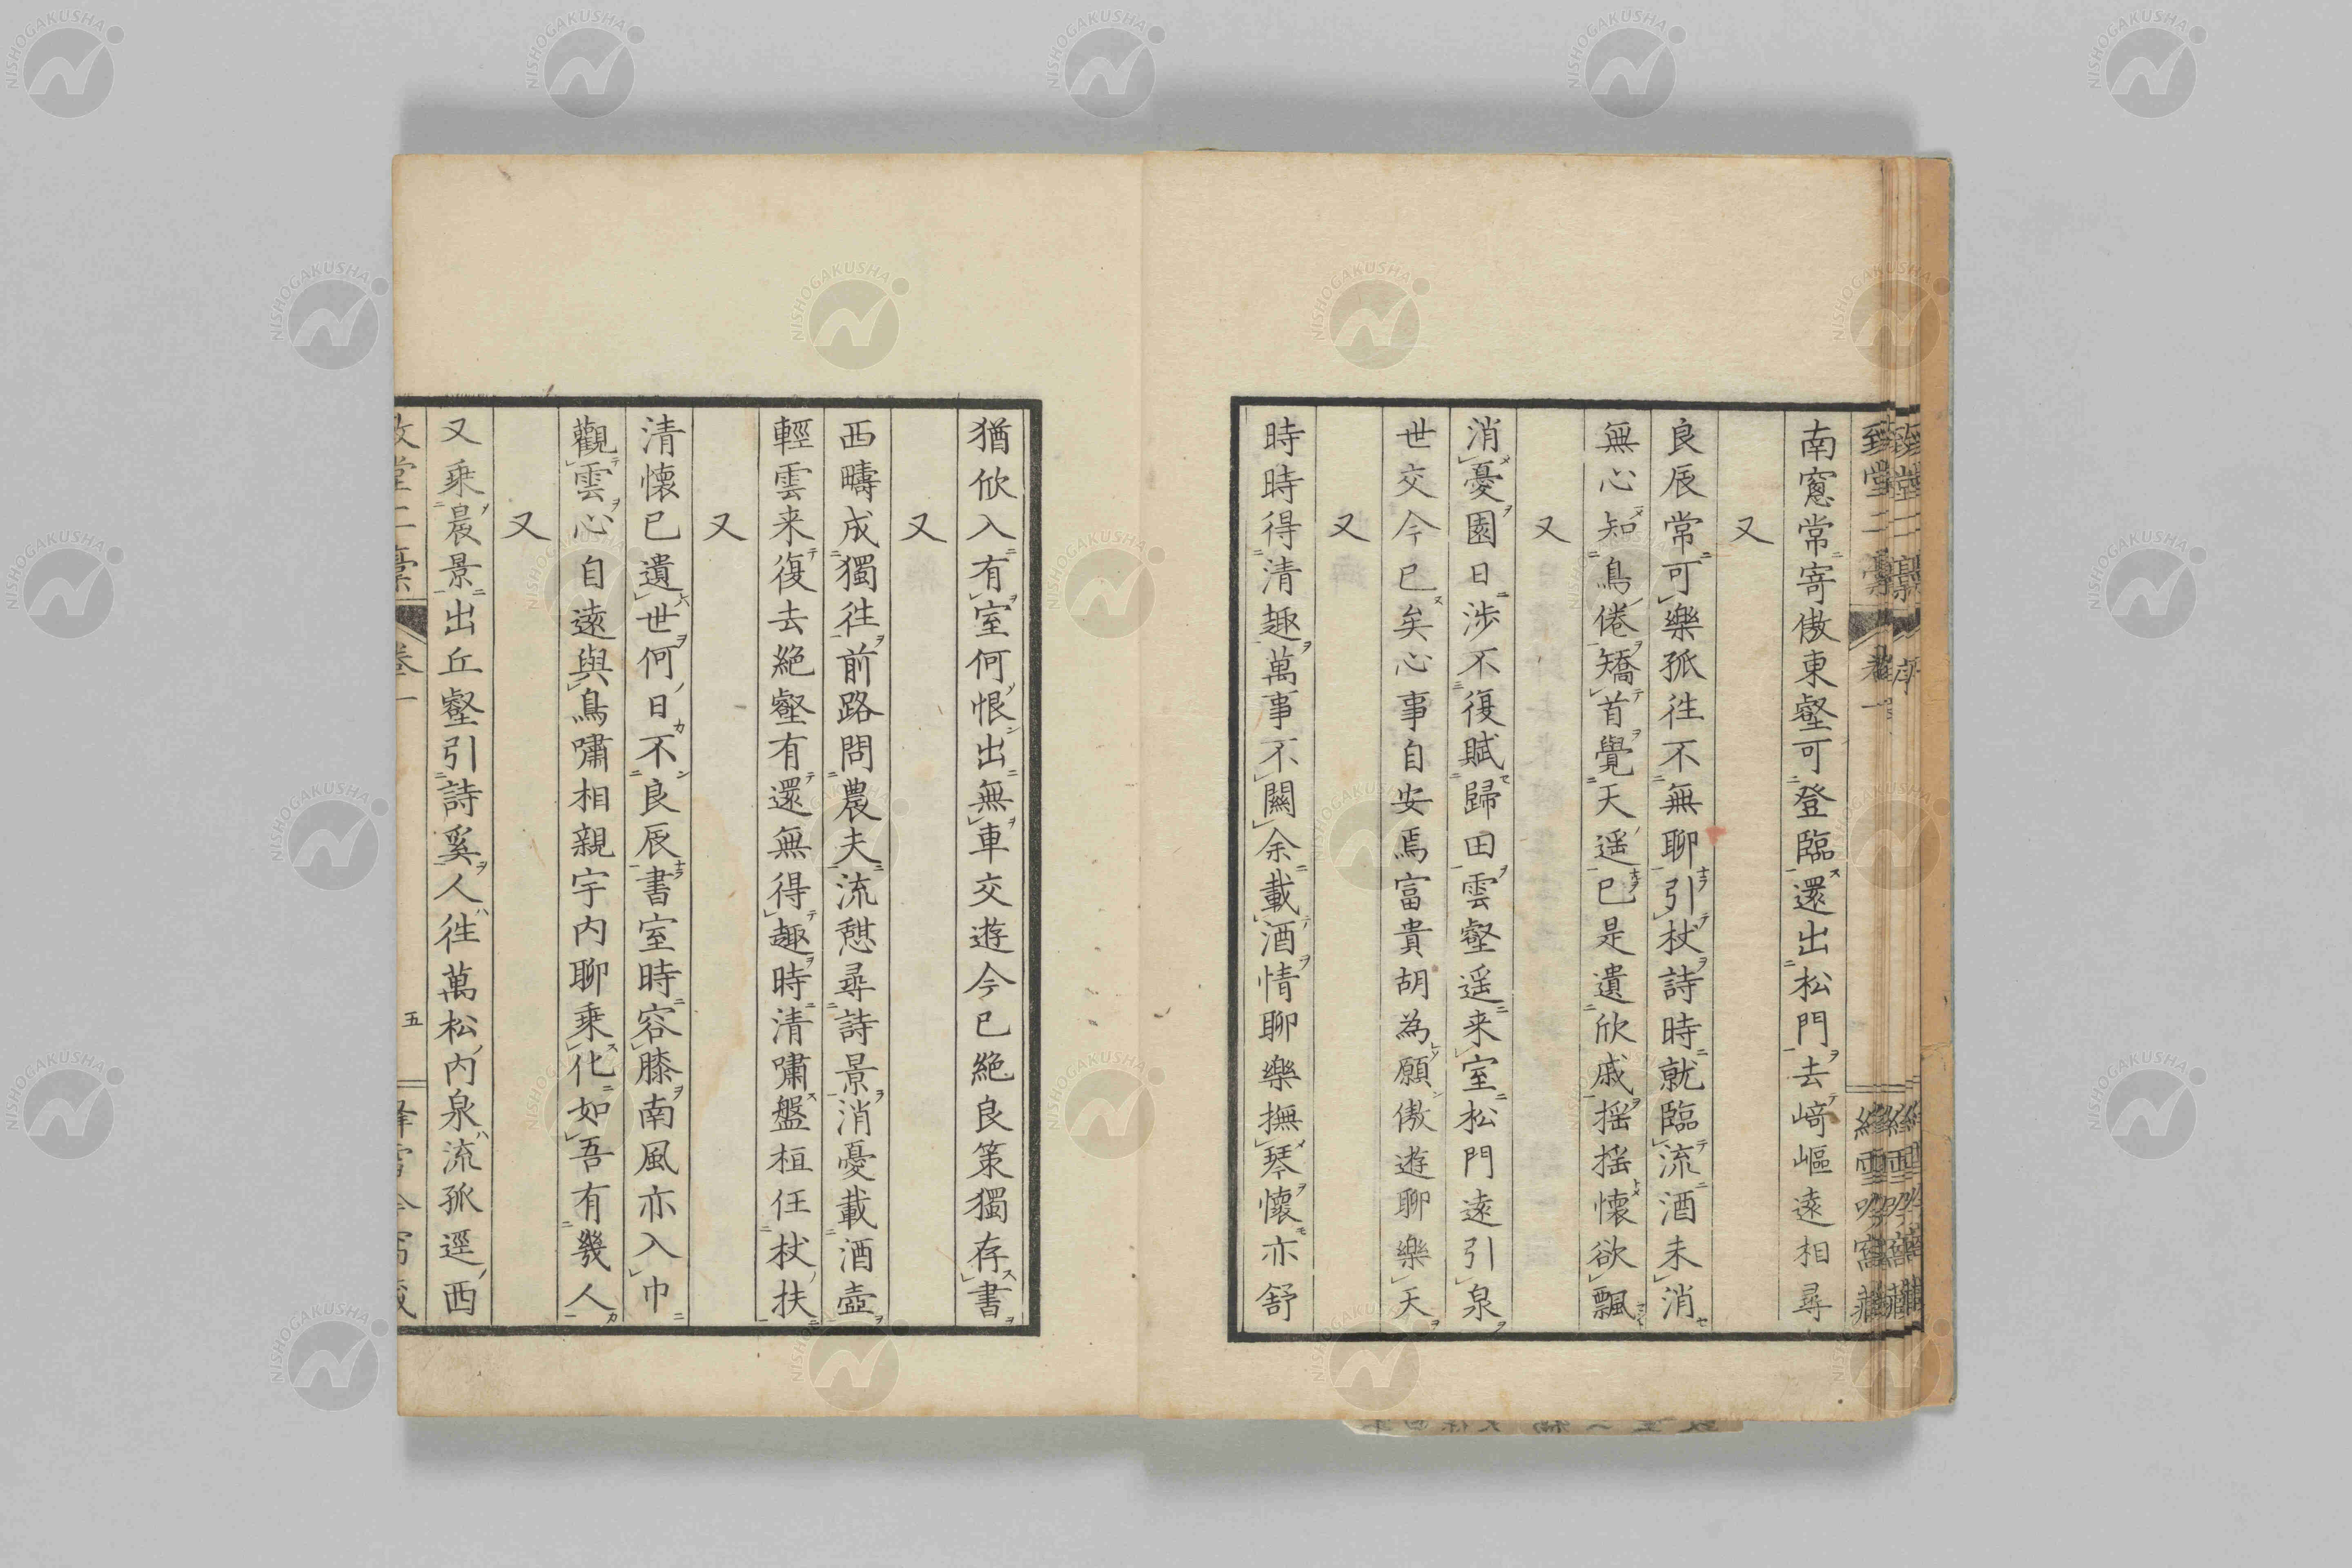 南窓常寄傲東壑可登臨還出松門去﨑嶇遠相尋
又
良辰常可樂孤往不無聊引杖詩時就臨流酒未消
無心知鳥倦矯首覺天遥已是遺欣戚揺揺懷欲飄
又
消憂園日涉不復賦歸田雲壑遥来室松門遠引泉
世交今已矣心事自安焉富貴胡為願傲遊聊樂天
又
時時得清趣萬事不關余載酒情聊樂撫琴懷亦舒
猶欣入有室何恨出無車交遊今已絶良策獨存書
又
西疇成獨往前路問農夫流憇尋詩景消憂載酒壺
輕雲来復去絶壑有還無得趣時清嘯盤桓任杖扶
又
清懷已遺世何日不良辰書室時容膝南風亦入巾
觀雲心自遠與鳥嘯相親宇内聊乘化如吾有幾人
又
又乘晨景出丘壑引詩奚人往萬松内泉流孤逕西
五
NISHOGAKUSHA